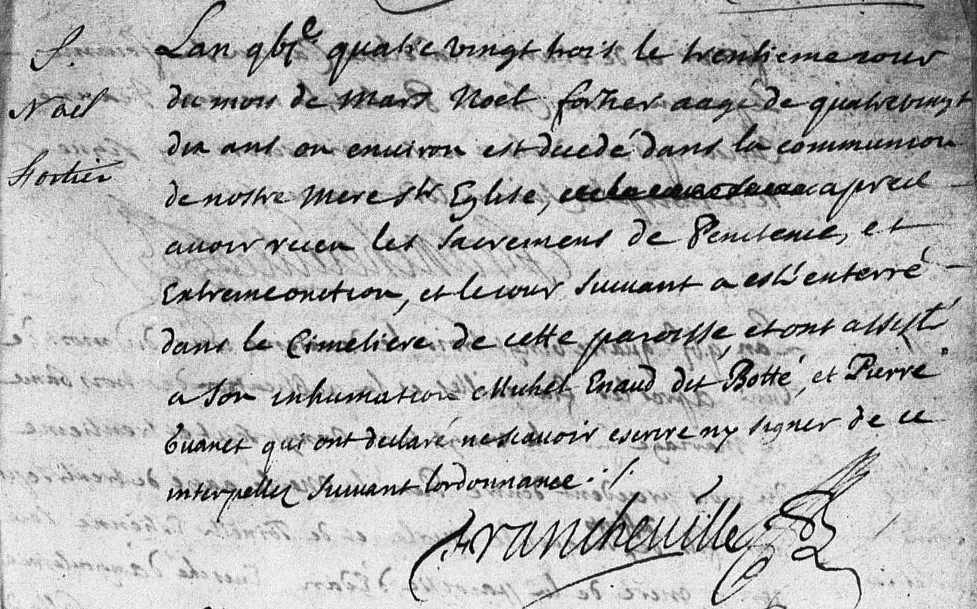 S.
Noel
fortier
Lan gbjc quatre vingt trois le trentieme jour
du mois de Mars Noel fortier aagé de quatrevingt
dix ans ou environ est decedé dans la communion
de nostre Mere ste Eglise, apres
avoir receu les Sacremens de Penitence, et
Extremeonction, et le jour suivant a esté enterré
dans le Cimetiere de cette paroisse, et ont assisté
a son inhumation Michel Enaud dit Botté, et Pierre
qui ont declaré ne scavoir escrire ny signer de ce
interpellez suivant lordonnance ./.
Francheville